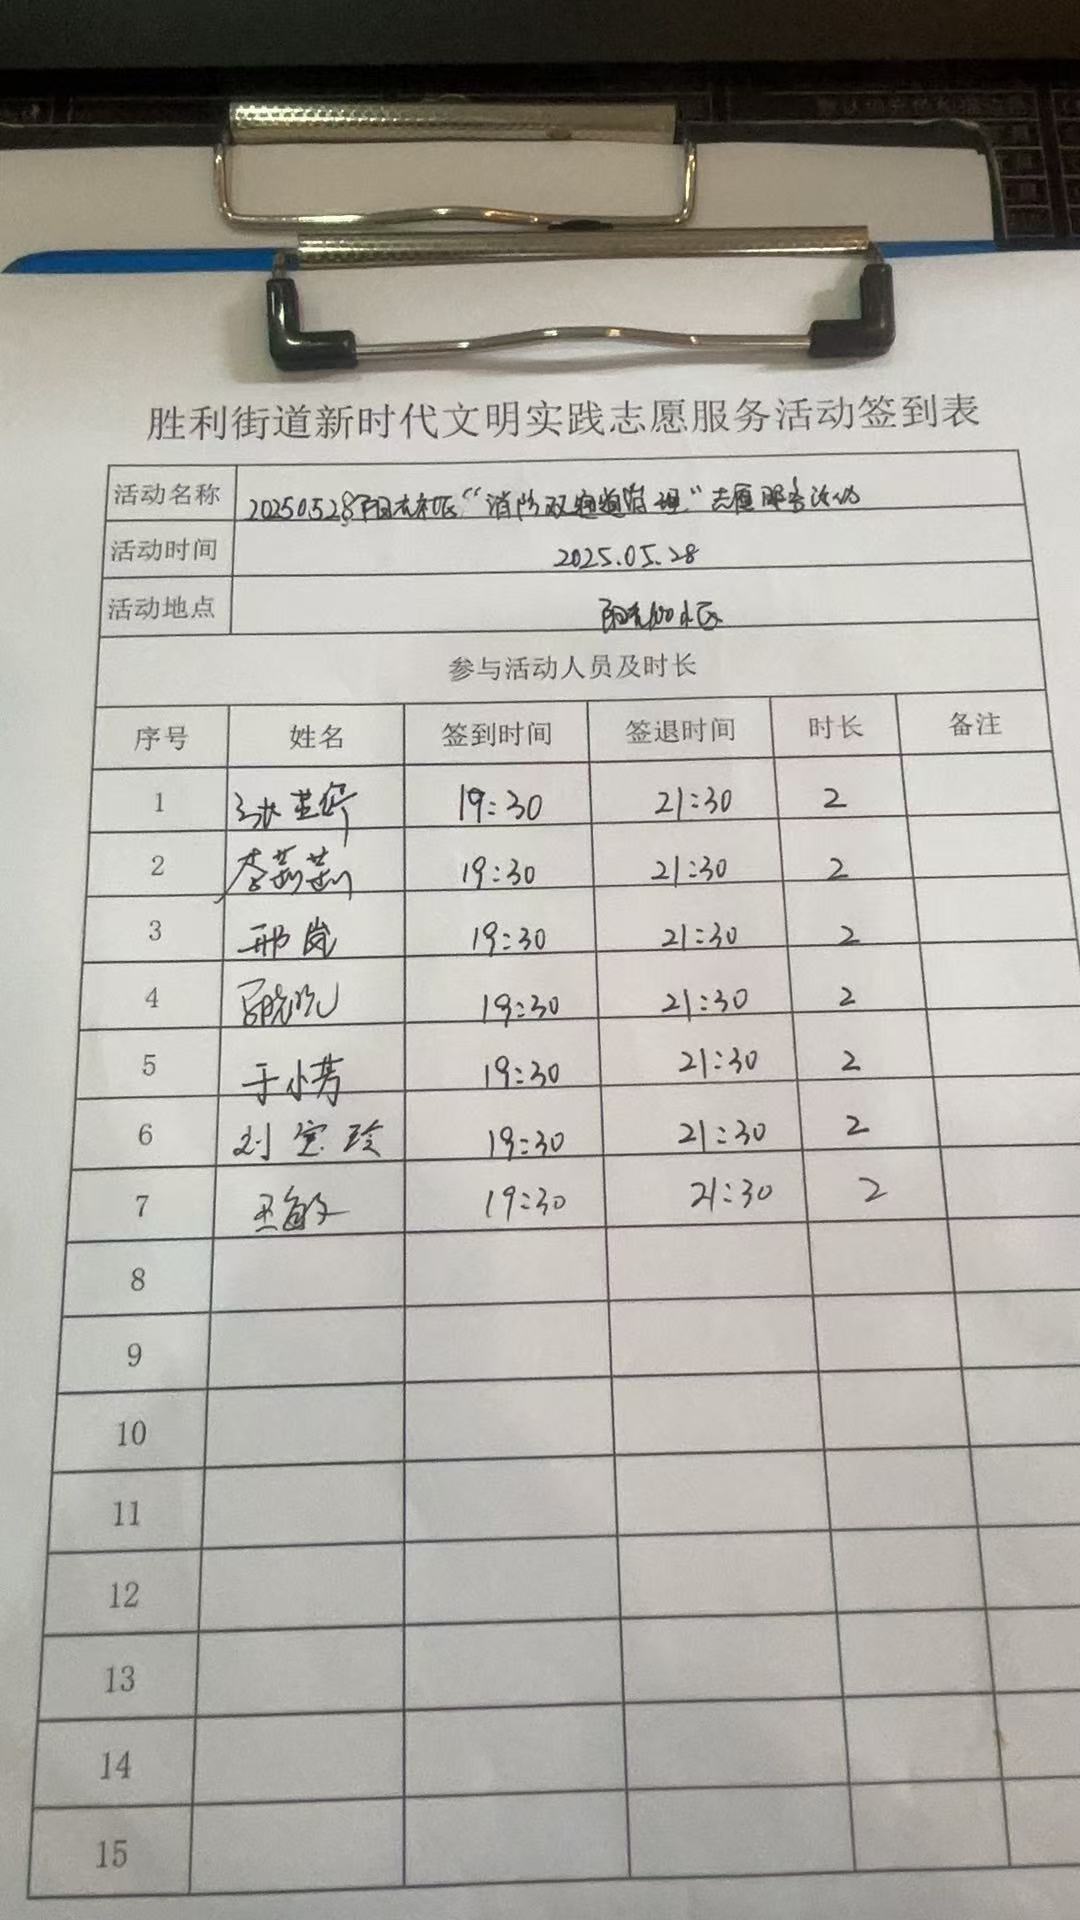 胜利街道新时代文明实践志愿服务活动签到表
活动名称 20250528阳光社区“消防双通道治理”志愿服务活动
活动时间 2025.05.28
活动地点 阳光100小区
参与活动人员及时长
序号 姓名 签到时间 签退时间 时长 备注
1 19:30 21:30 2
2 李莉莉 19:30 21:30 2
3 邢岚 19:30 21:30 2
4 19:30 21:30 2
5 于小芳 19:30 21:30 2
6 刘宝玲 19:30 21:30 2
7 王敏 19:30 21:30 2
8
9
10
11
12
13
14
15